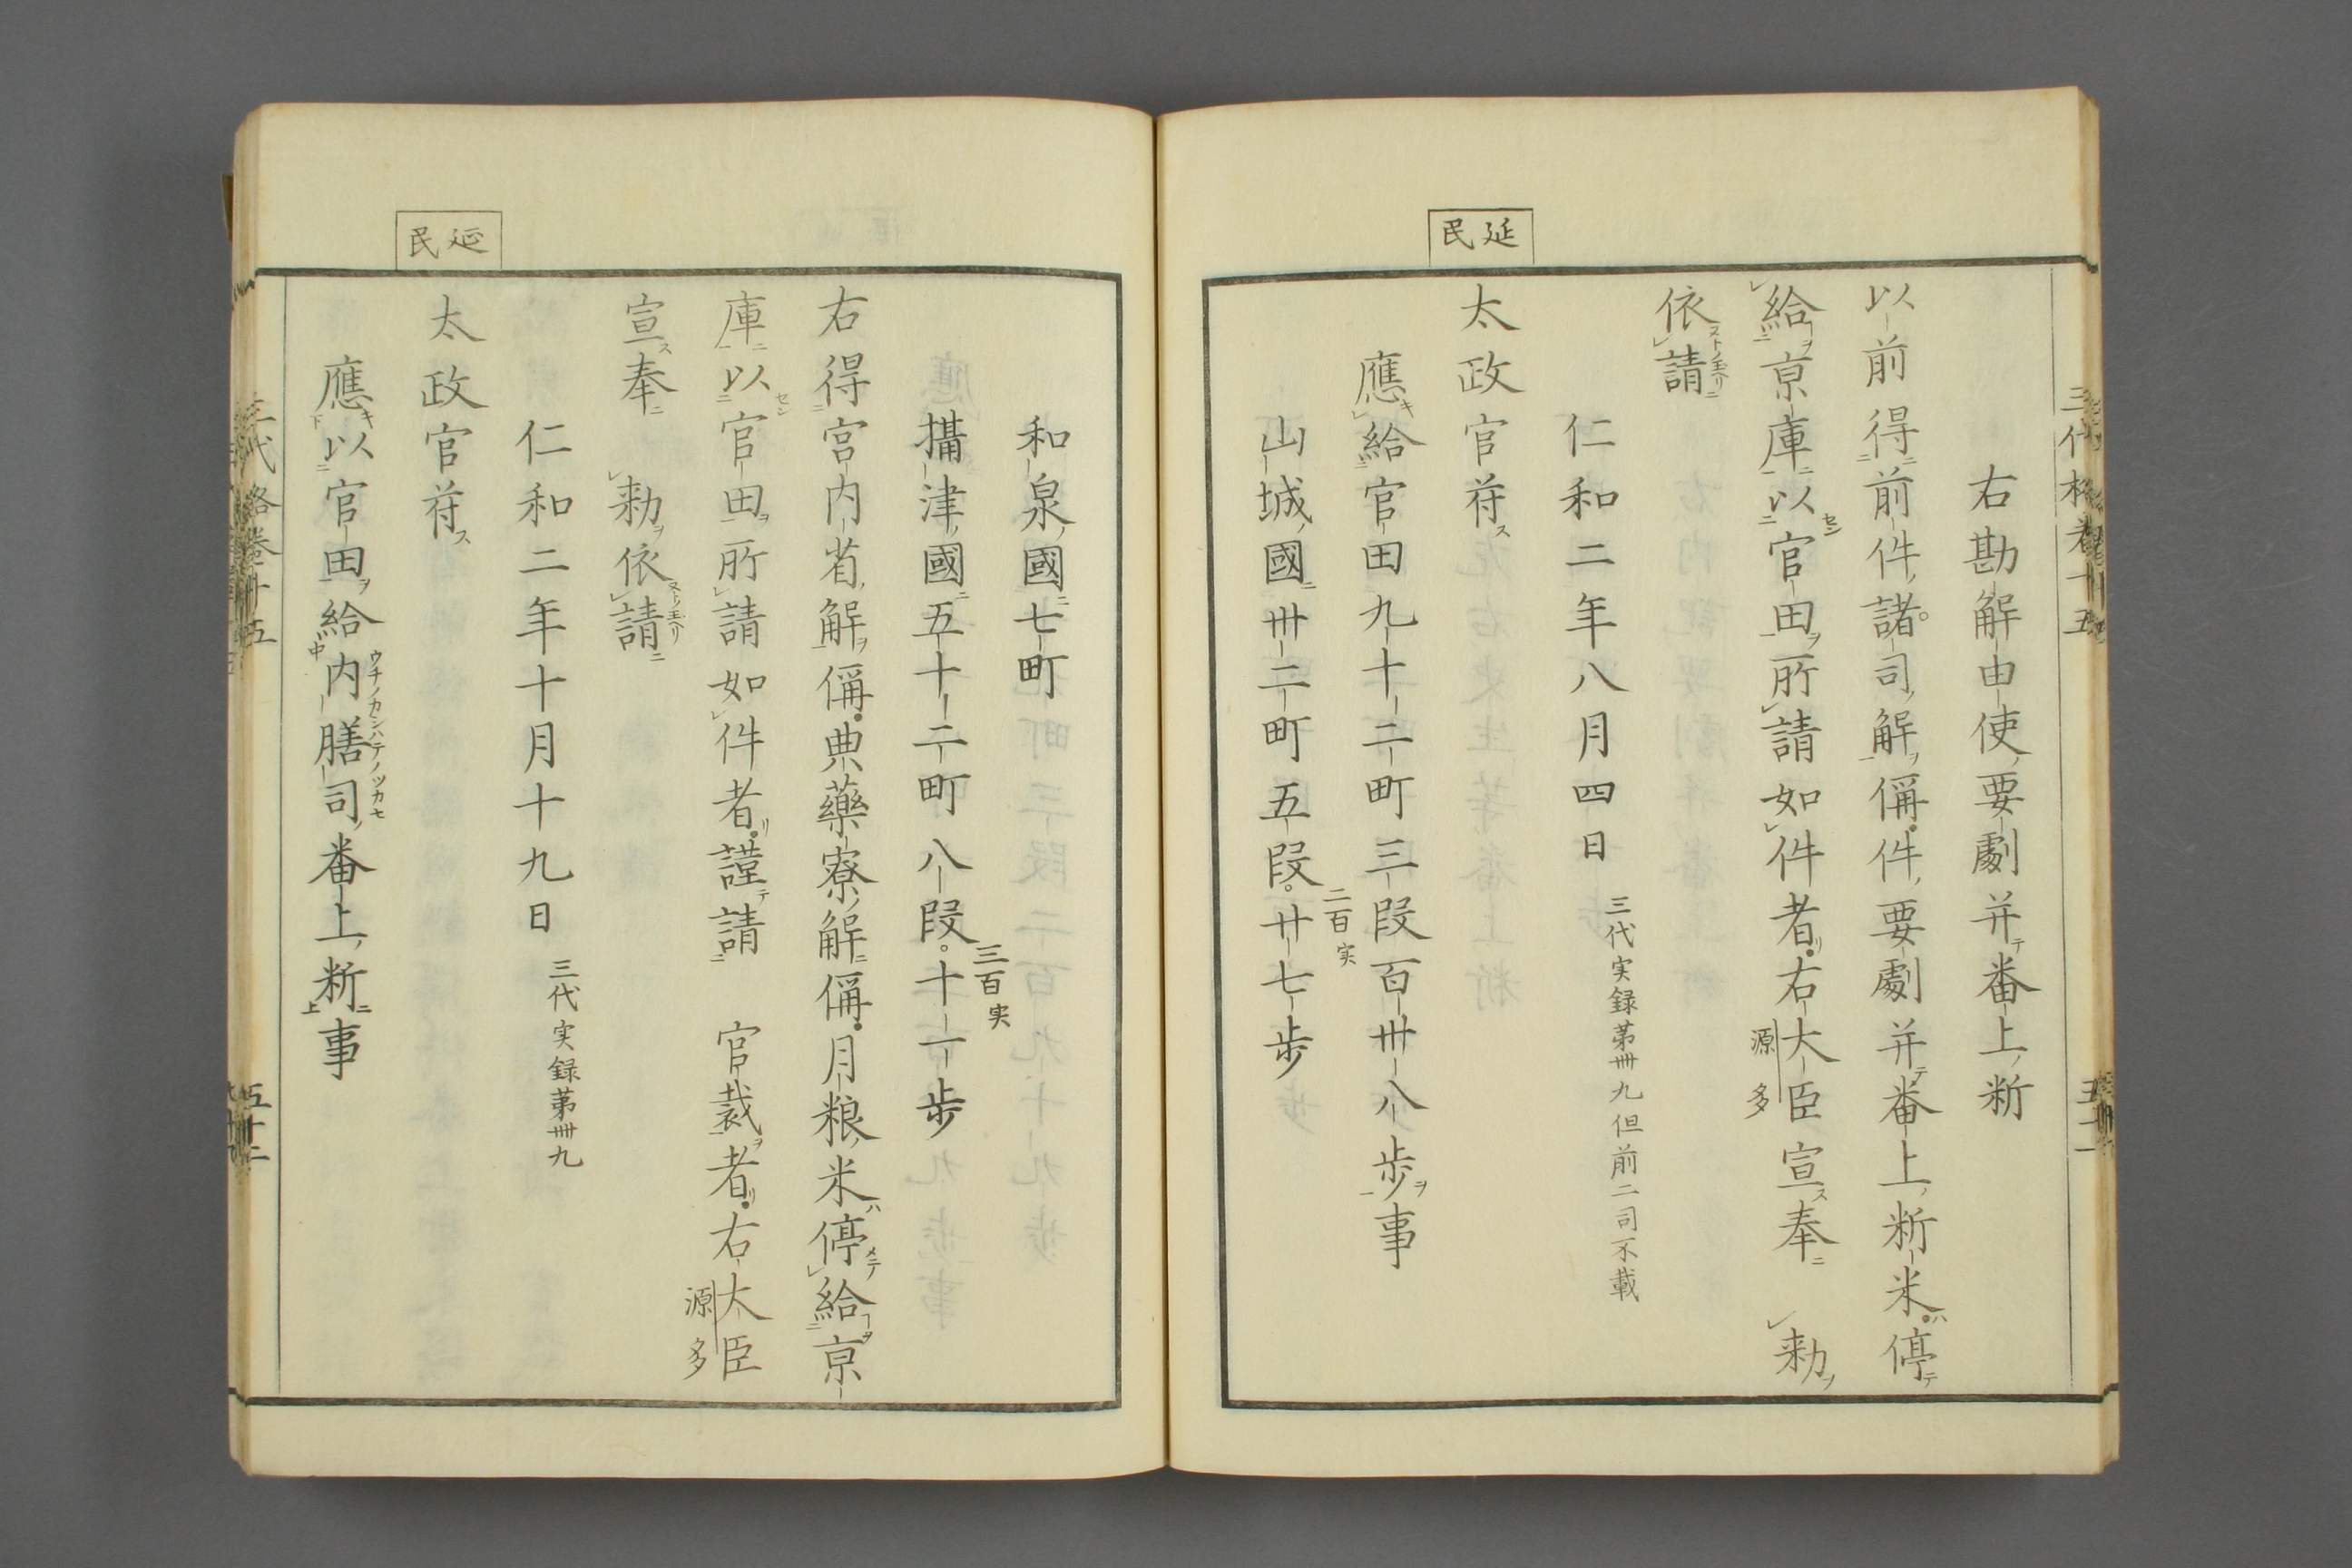 三代格卷十五
五十一
延民
右勘解由使要劇并番上䉼
以前得前件諸司解偁件要劇并番上䉼米停
給京庫以官田所請如件者右大臣宣奉　勅
源多
依請
仁和二年八月四日　三代実録苐卌九但前二司不載
太政官苻
應給官田九十二町三段百卌八歩事
山城國卅二町五段廿七歩
二百実
延民
和泉國七町
攝津國五十二町八段十一歩
三百実
右得宮内省解偁典藥寮解偁月粮米停給京
庫以官田所請如件者謹請　官裁者右大臣
源多
宣奉　勅依請
仁和二年十月十九日　三代実録苐卌九
太政官苻
應以官田給内膳司番上䉼事
三代格卷十五
五十二